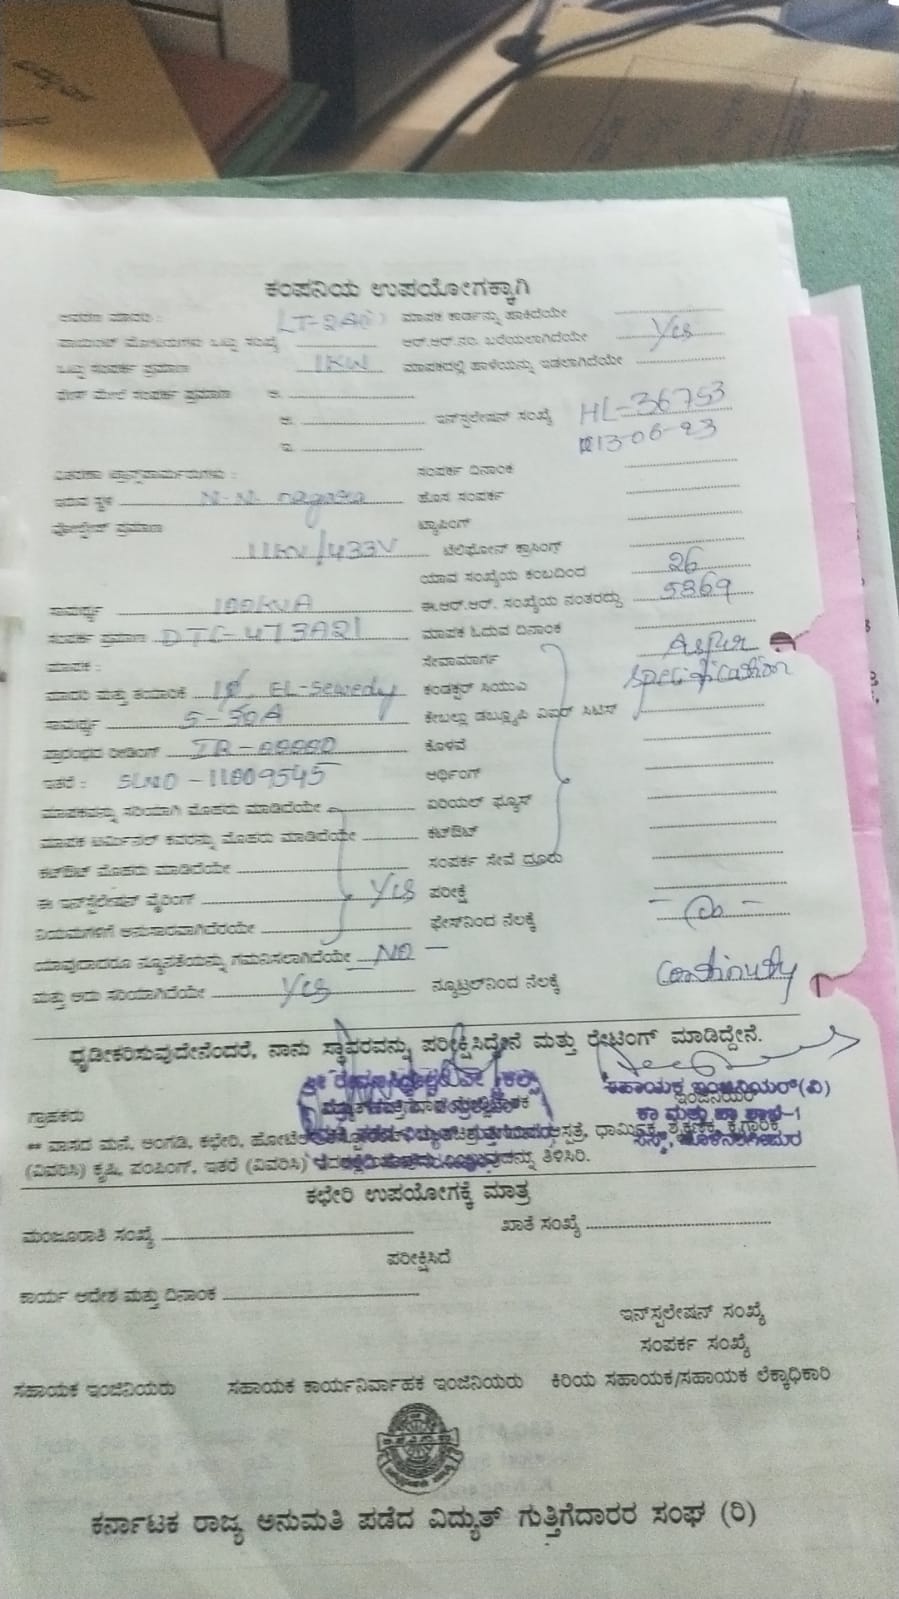 ಕಂಪನಿಯ ಉಪಯೋಗಕ್ಕಾಗಿ
LT-2A(i) ಮಾಪಕ ಕಾರ್ಡನ್ನು ಹಾಕಿದೆಯೇ
ಪಾಯಿಂಟ್ ಮೋಟಾರುಗಳು ಒಟ್ಟು ಸಂಖ್ಯೆ ಆರ್.ಆರ್.ನಂ. ಬರೆಯಲಾಗಿದೆಯೇ Yes
ಒಟ್ಟು ಸಂಪರ್ಕ ಪ್ರಮಾಣ 1KW ಮಾಪಕದಲ್ಲಿ ಹಾಳೆಯನ್ನು ಇಡಲಾಗಿದೆಯೇ
ಮೇಲೆ ಸಂಪರ್ಕ ಪ್ರಮಾಣ ಅ.
ಆ. ಇನ್‌ಸ್ಟಲೇಷನ್ ಸಂಖ್ಯೆ HL-36753
ಇ. 13-06-23
ಸಂಪರ್ಕ ದಿನಾಂಕ
ಇರುವ ಸ್ಥಳ N.N. nagara ಹೊಸ ಸಂಪರ್ಕ
ವೋಲ್ಟೇಜ್ ಪ್ರಮಾಣ ಟ್ಯಾಪಿಂಗ್
11KV/433V ಟೆಲಿಫೋನ್ ಕ್ರಾಸಿಂಗ್
ಯಾವ ಸಂಖ್ಯೆಯ ಕಂಬದಿಂದ 26
ಸಾಮರ್ಥ್ಯ 100KVA ಈ.ಆರ್.ಆರ್. ಸಂಖ್ಯೆಯ ನಂತರದ್ದು 5869
ಸಂಪರ್ಕ ಪ್ರಮಾಣ DTC-473A21 ಮಾಪಕ ಓದುವ ದಿನಾಂಕ
ಮಾಪಕ : ಸೇವಾಮಾರ್ಗ As per
ಮಾದರಿ ಮತ್ತು ತಯಾರಿಕೆ 1Ø, EL-Sewedy ಕಂಡಕ್ಟರ್ ಸಿಯುಎ Specification
ಸಾಮರ್ಥ್ಯ 5-30A ಕೇಬಲ್ಲು ಡಬ್ಲ್ಯೂಪಿ ಎಫ್ ಸಿಟಿಸ್
ಪ್ರಾರಂಭದ ರೀಡಿಂಗ್ IR-00000 ಕೊಳವೆ
ಇತರೆ : SLNO-11809545 ಅರ್ಥಿಂಗ್
ಮಾಪಕವನ್ನು ಸರಿಯಾಗಿ ಮೊಹರು ಮಾಡಿದೆಯೇ ಏರಿಯಲ್ ಫ್ಯೂಸ್
ಮಾಪಕ ಟರ್ಮಿನಲ್ ಕವರನ್ನು ಮೊಹರು ಮಾಡಿದೆಯೇ ಕಟ್‌ಔಟ್
ಕಟ್‌ಔಟ್ ಮೊಹರು ಮಾಡಿದೆಯೇ ಸಂಪರ್ಕ ಸೇವೆ ದ್ರೂರು
ಈ ಇನ್‌ಸ್ಟಲೇಷನ್ ವೈರಿಂಗ್ Yes ಪರೀಕ್ಷೆ
ನಿಯಮಗಳಿಗೆ ಅನುಸಾರವಾಗಿದೆಯೇ ಫೇಸ್‌ನಿಂದ ನೆಲಕ್ಕೆ
ಯಾವುದಾದರೂ ನ್ಯೂನತೆಯನ್ನು ಗಮನಿಸಲಾಗಿದೆಯೇ NO
ಮತ್ತು ಅದು ಸರಿಯಾಗಿದೆಯೇ Yes ನ್ಯೂಟ್ರಲ್‌ನಿಂದ ನೆಲಕ್ಕೆ Continuty
ಧೃಡೀಕರಿಸುವುದೇನೆಂದರೆ, ನಾನು ಸ್ಥಾವರವನ್ನು ಪರೀಕ್ಷಿಸಿದ್ದೇನೆ ಮತ್ತು ರೇಟಿಂಗ್ ಮಾಡಿದ್ದೇನೆ.
ಸಹಾಯಕ ಇಂಜಿನಿಯರ್(ವಿ)
ಗ್ರಾಹಕರು
** ವಾಸದ ಮನೆ, ಅಂಗಡಿ, ಕಛೇರಿ, ಹೋಟೆಲ್ ಧಾರ್ಮಿಕ, ಶೈಕ್ಷಣಿಕ, ಕೈಗಾರಿಕೆ
(ವಿವರಿಸಿ) ಕೃಷಿ, ಪಂಪಿಂಗ್, ಇತರೆ (ವಿವರಿಸಿ) ತಿಳಿಸಿರಿ.
ಕಛೇರಿ ಉಪಯೋಗಕ್ಕೆ ಮಾತ್ರ
ಮಂಜೂರಾತಿ ಸಂಖ್ಯೆ ಖಾತೆ ಸಂಖ್ಯೆ
ಪರೀಕ್ಷಿಸಿದೆ
ಕಾರ್ಯ ಆದೇಶ ಮತ್ತು ದಿನಾಂಕ
ಇನ್‌ಸ್ಟಲೇಷನ್ ಸಂಖ್ಯೆ
ಸಂಪರ್ಕ ಸಂಖ್ಯೆ
ಸಹಾಯಕ ಇಂಜಿನಿಯರು ಸಹಾಯಕ ಕಾರ್ಯನಿರ್ವಾಹಕ ಇಂಜಿನಿಯರು ಕಿರಿಯ ಸಹಾಯಕ/ಸಹಾಯಕ ಲೆಕ್ಕಾಧಿಕಾರಿ
ಕರ್ನಾಟಕ ರಾಜ್ಯ ಅನುಮತಿ ಪಡೆದ ವಿದ್ಯುತ್ ಗುತ್ತಿಗೆದಾರರ ಸಂಘ (ರಿ)